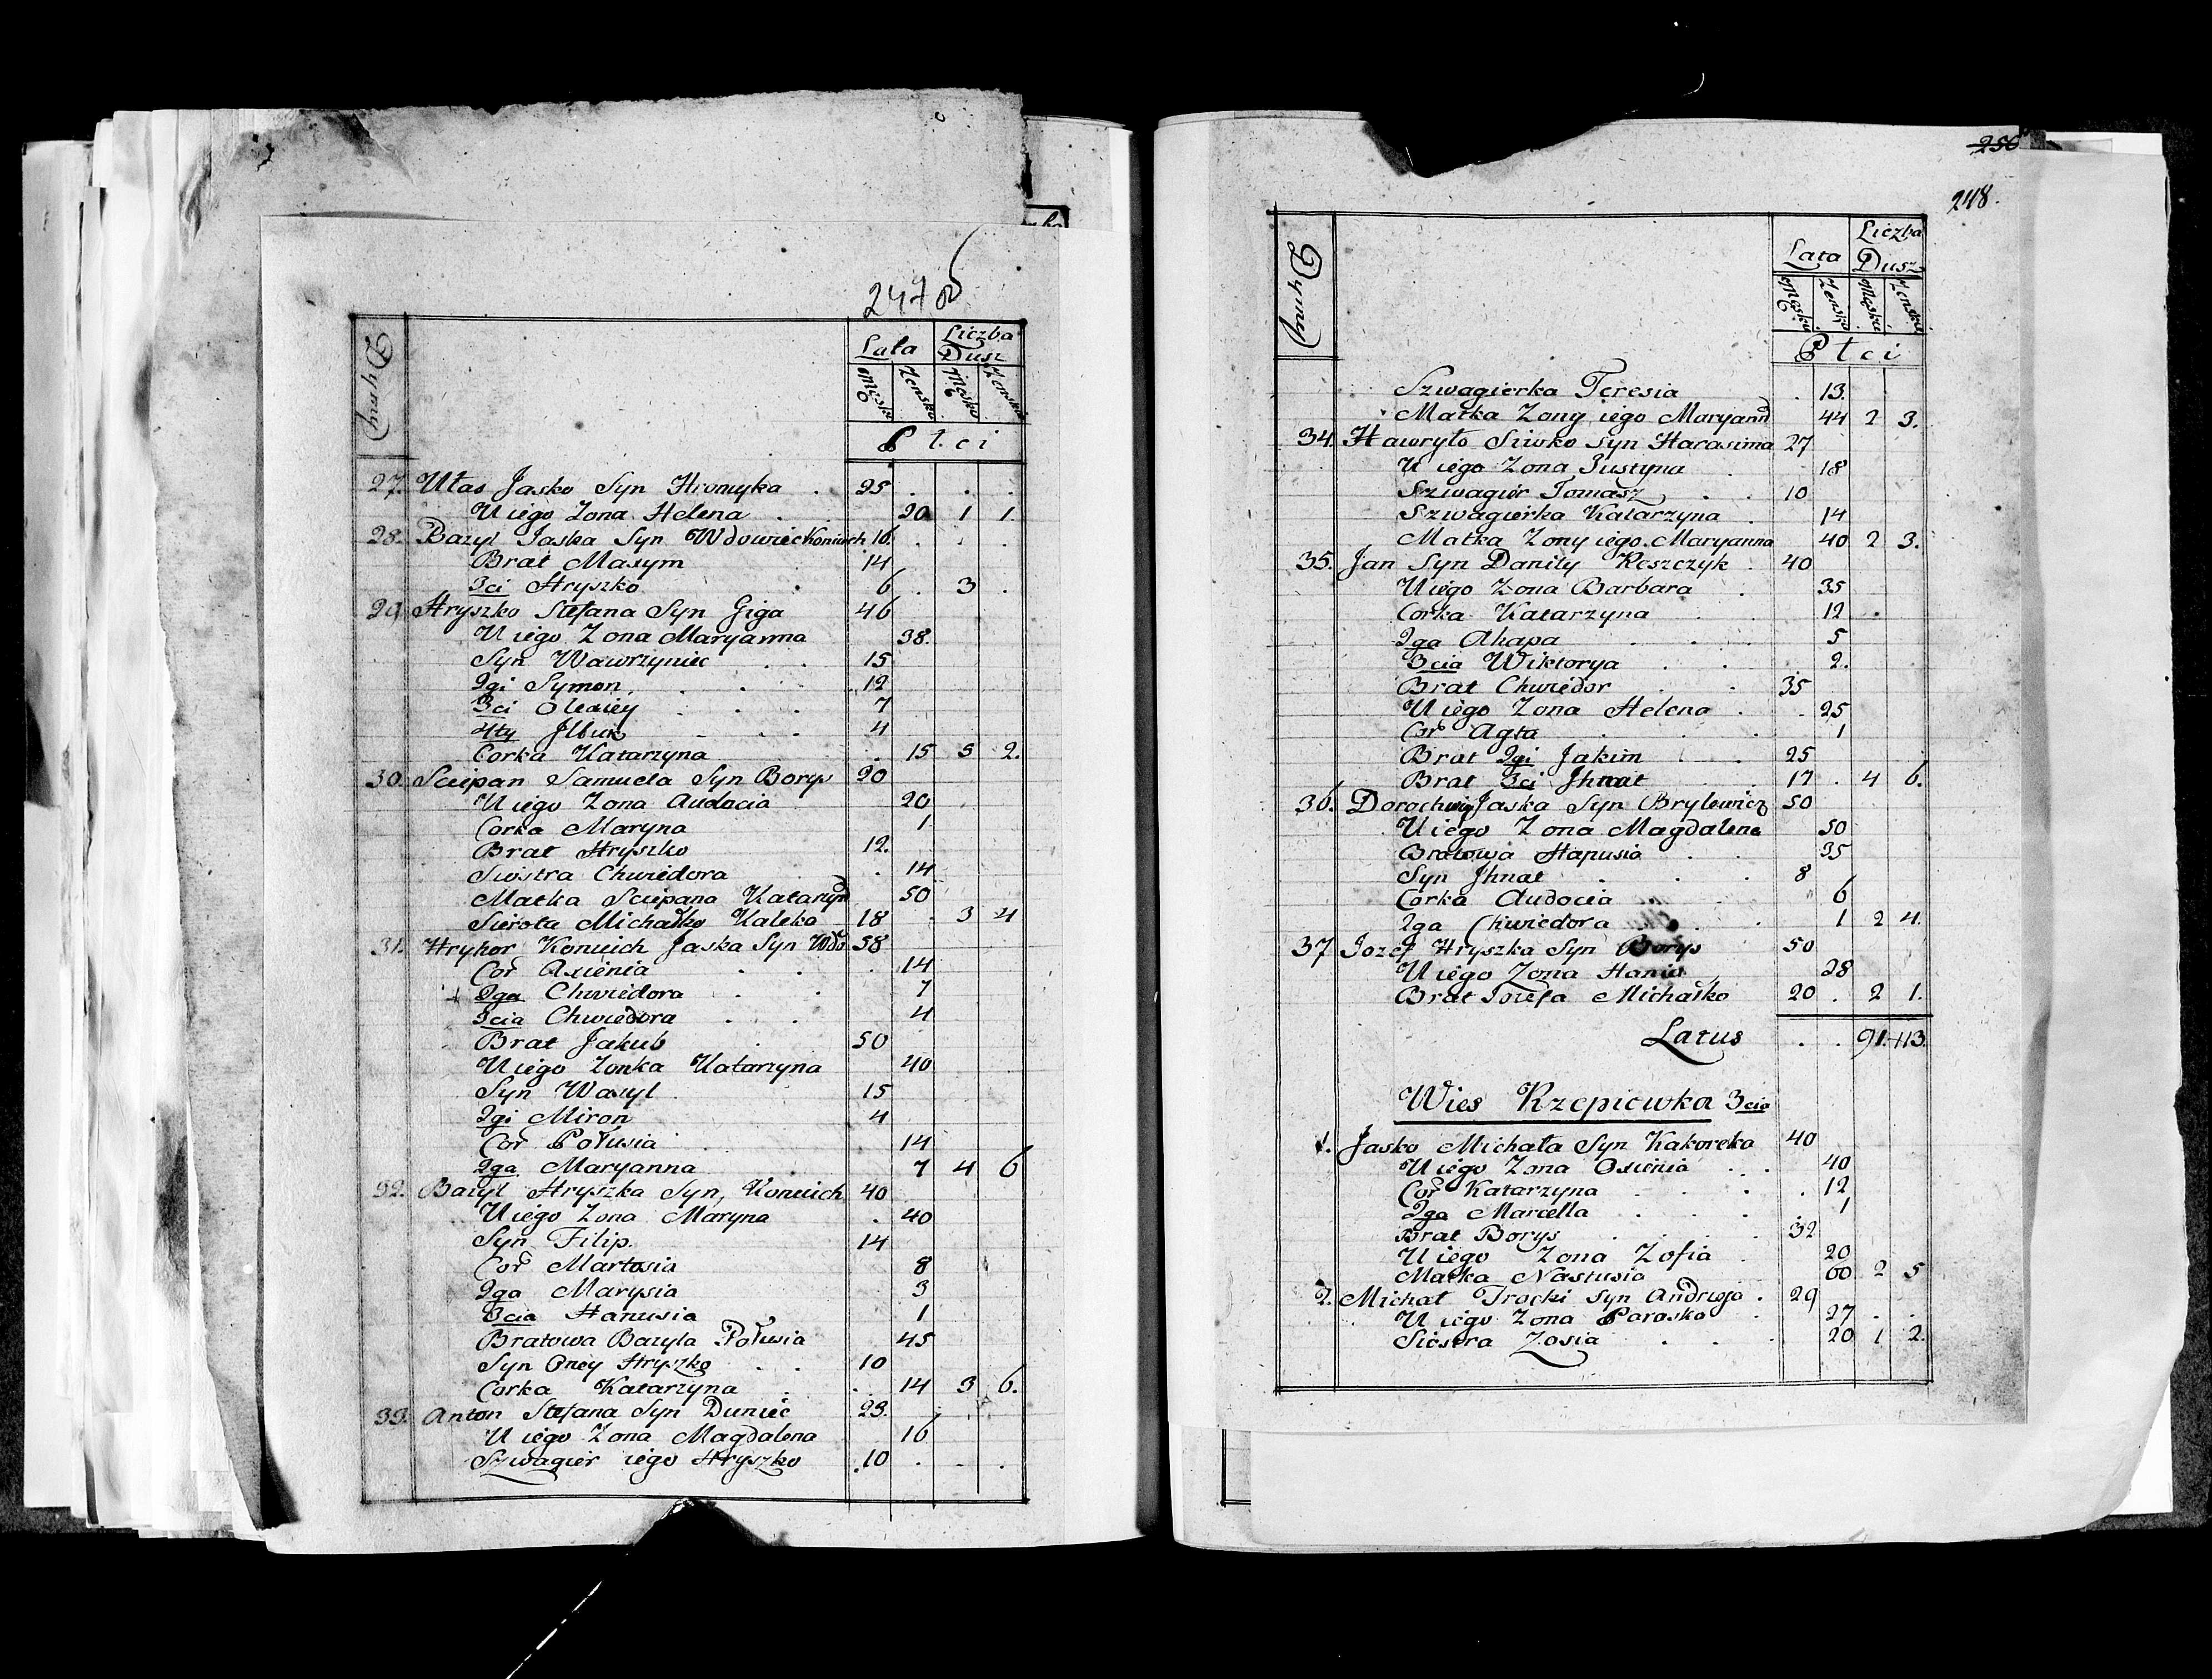 247 об
Dymy
Lata Liczba Dusz
Męska Zenska Męska Zenska
Płci
27. Ułas Jasko Syn Hromyka . 25 . . .
U iego Zona Helena . . 20 1 1.
28. Bazyl Jaska Syn Wdowiec Koniuch 16. . . .
Brat Maxym 14
3ci Hryszko 6 . 3 .
29. Hryszko Stefana Syn Giga 46
U iego Zona Maryanna 38.
Syn Wawrzyniec . . 15
2gi Symon . . . 12
3ci Olexiey . . . 7
4ty . . . 4
Corka Katarzyna . 15 5 2.
30. Sciepan Samuela Syn Borys 20
U iego Zona Audocia 20
Corka Maryna 1
Brat Hryszko 12.
Siostra Chwiedora . 14
Matka Sciepana Kataryn 50
Sierota Michałko Kaleka 18 . 3 4
31. Hryhor Koniuch Jaska Syn Wdo 58
Cor Axienia . . . 14
2ga Chwiedora . . 7
3cia Chwiedora . . 4
Brat Jakub . 50
U iego Zonka Katarzyna 40
Syn Wasyl 15
2gi Miron 4
Cor Połusia 14
2ga Maryanna . 7 4 6
32. Bazyl Hryszka Syn, Koniuch 40
U iego Zona Maryna . 40
Syn Filip. 14
Cor Martosia 8
2ga Marysia 3
3cia Hanusia 1
Bratowa Bazyla Połusia 45
Syn Oney Hryszko . . 10
Corka Katarzyna . . 14 3 6.
33. Anton Stefana Syn Duniec 23.
U iego Zona Magdalena 16
Szwagier iego Hryszko .10 . . .
250
248.
Dymy
Lata Liczba Dusz
Męska Zenska Męska Zenska
Płci
Szwagierka Teresia . 13.
Matka Zony iego Maryann 44 2 3.
34. Hawryło Siwko Syn Harasima 27
U iego Zona Justyna . 18
Szwagier Tomasz . . 10
Szwagierka Katarzyna . 14
Matka Zony iego Maryanna 40 2 3.
35. Jan Syn Daniły Keszczyk . 40
U iego Zona Barbara . 35
Corka Katarzyna . . 12 .
2ga Ahapa . . . 5
3cia Wiktorya . . 2.
Brat Chwiedor . . 35
U iego Zona Helena . . 25
Cor Agta . . . 1
Brat 2gi Jakim . 25
Brat 3ci Jhnat 17 . 4 6.
36. Jaska Syn Brylewicz 50
U iego Zona Magdalena 50
Bratowa Hapusia . . 35
Syn Jhnat . . . 8
Corka Audocia 6
2ga Chwiedora . 1 2 4.
37 Jozef Hryszka Syn Borys 50
U iego Zona Hania 28
Brat Jozefa Michałko 20 . 2 1.
Latus . . 91. 113.
Wies Rzepiowka 3cia
1. Jasko Michała Syn Kakoreka 40
U iego Zona Oxienia . . 40
Cor Katarzyna . . . 12
2ga Marcella . . . 1
Brat Borys . . . 32
U iego Zona Zofia . 20
Matka Nastusia 60 2 5
2. Michał Trocki Syn Andrieja . 29
U iego Zona Paraska . 27 . .
Siostra Zosia . . . 20 1 2.